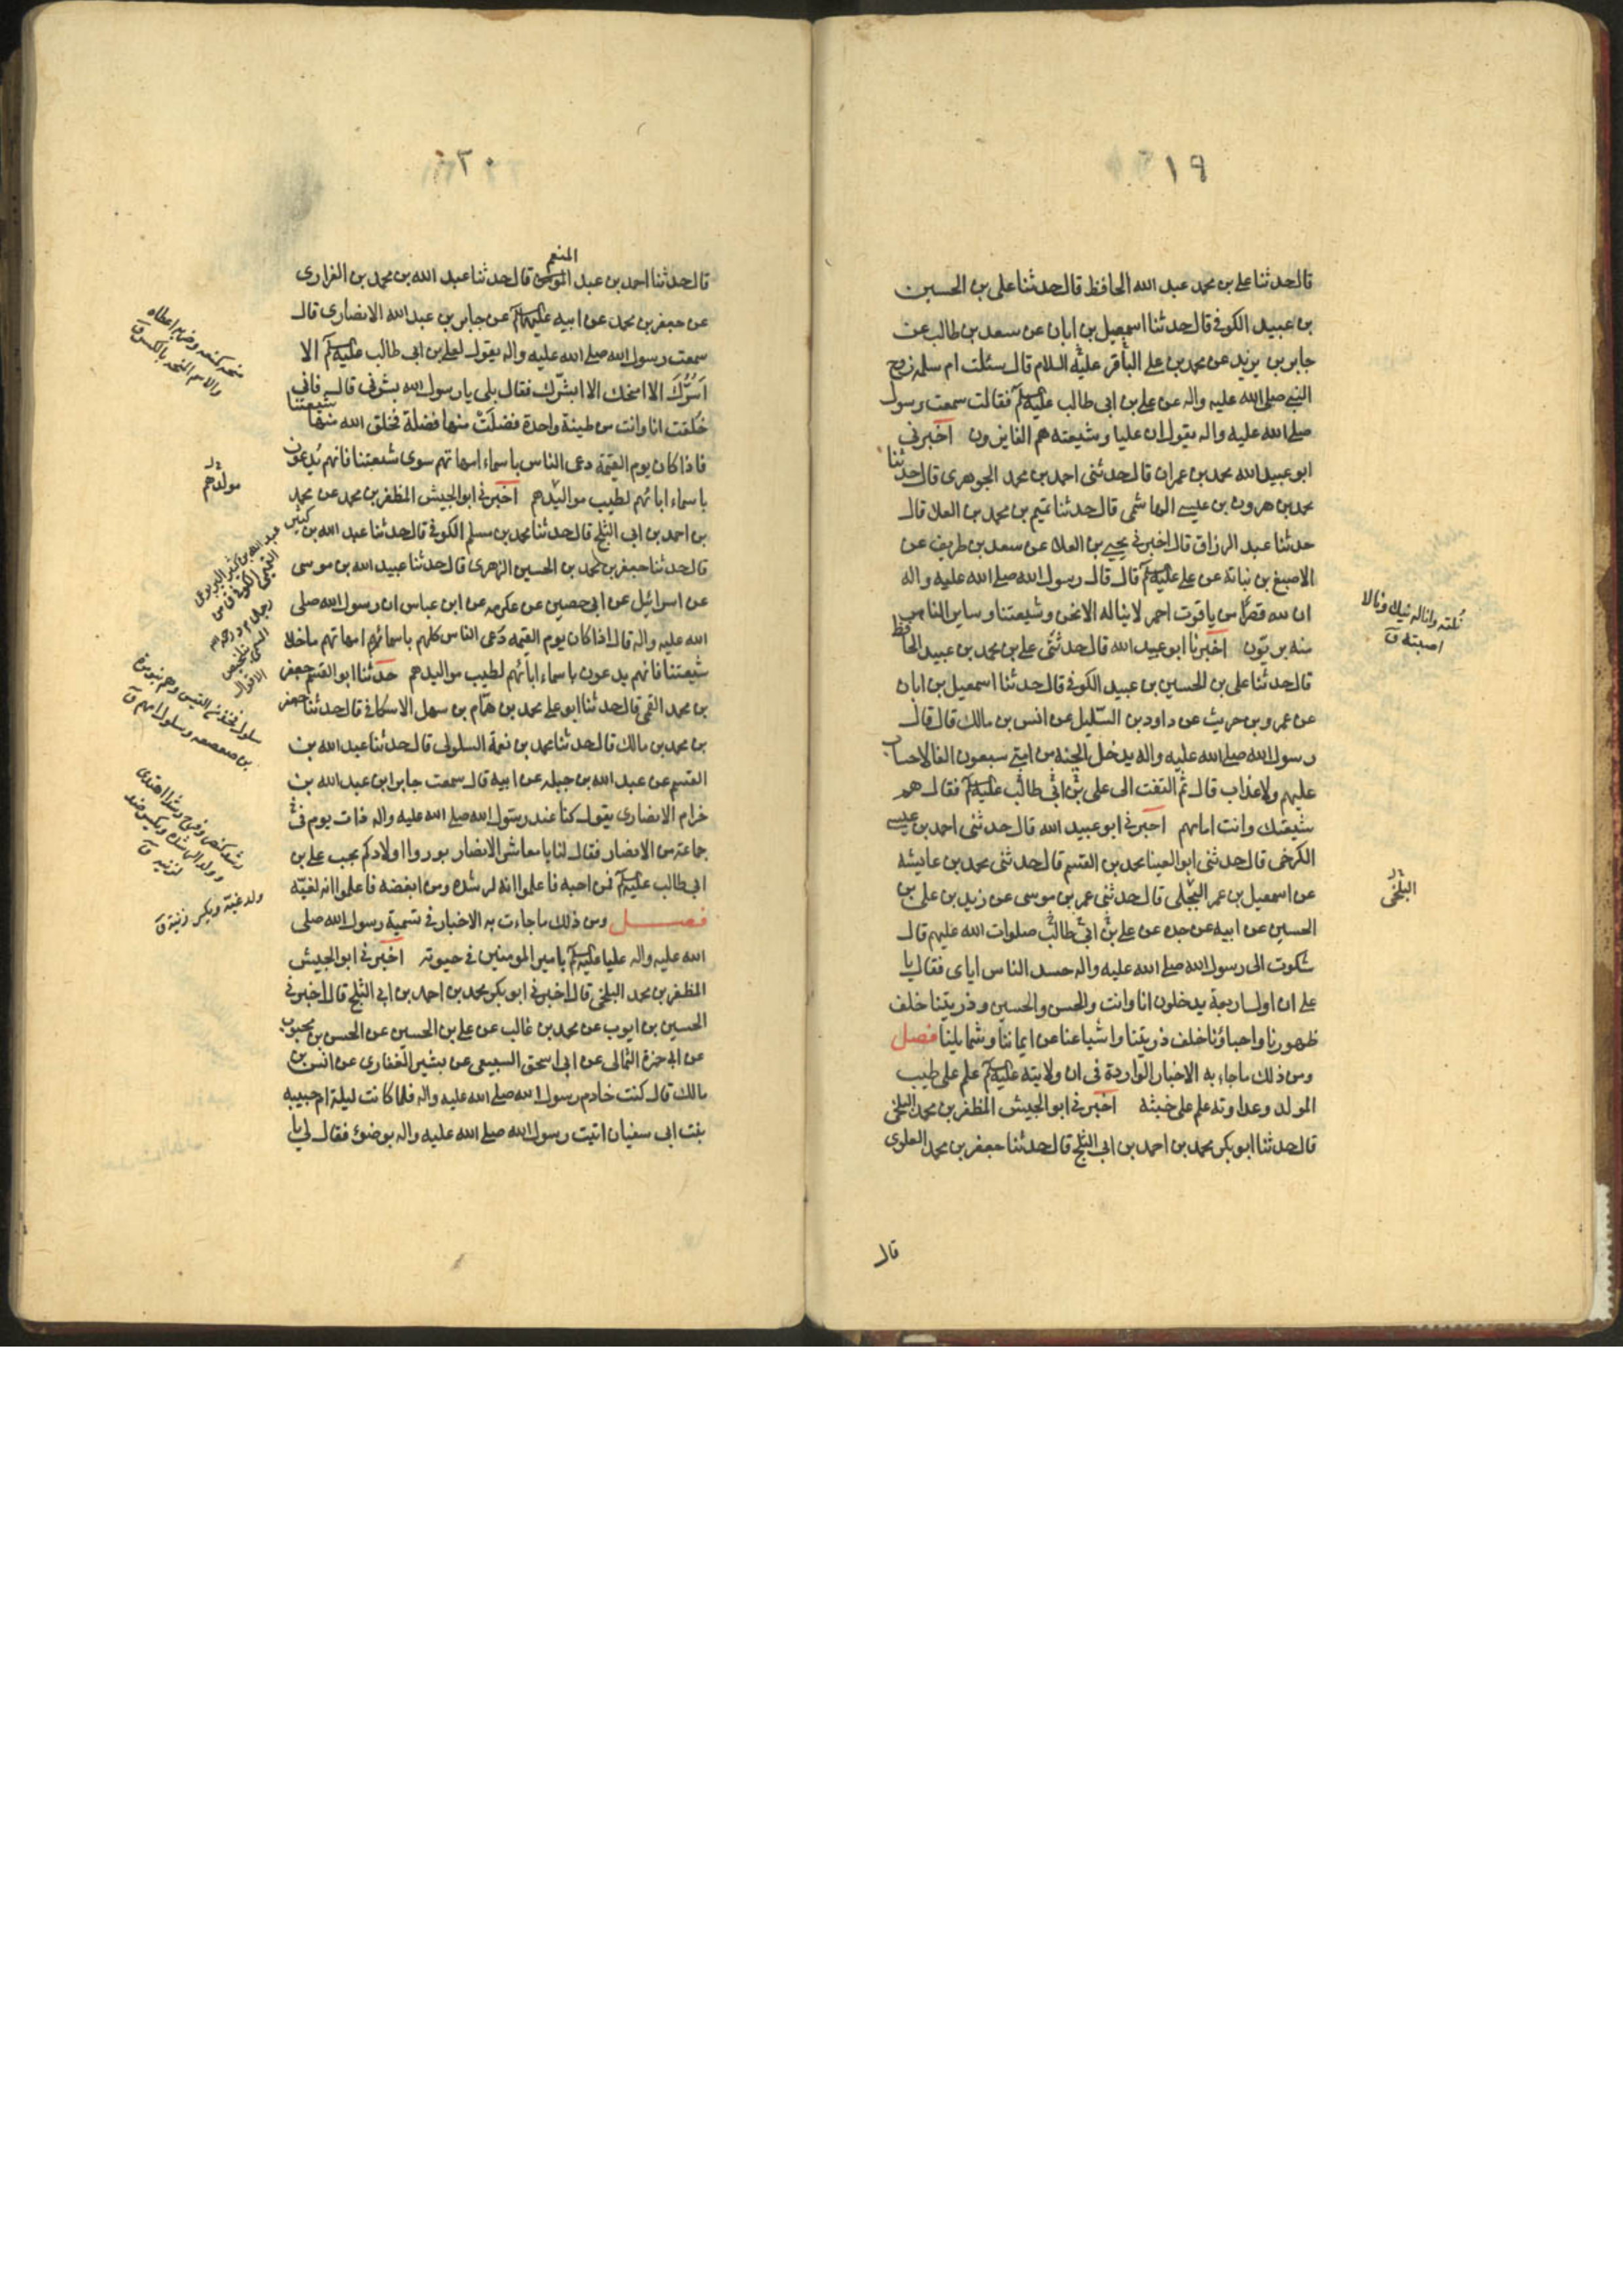 ١٩
قال حدثنا علي بن محمد عبد الله الحافظ قال حدثنا على بن الحسين
بن عبيد الكوفي قال حدثنا اسمعيل بن ابان عن سعد بن طالب عن
جابر بن يزيد عن محمد بن علي الباقر عليه السلام قال سئلت ام سلمه زوج
النبي صلى الله عليه واله عن علي بن ابى طالب عليه السلم فقالت سمعت رسول
صلى الله عليه واله يقول ان عليا وشيعته هم الفايزون اخبرني
ابو عبيد الله محمد بن عمران قال حدثنى احمد بن محمد الجوهرى قال حدثنا
محمد بن هرون بن عيسى الهاشمى قال حدثنا تميم بن محمد بن العلا قال
حدثنا عبد الرزاق قال اخبرنى يحيى بن العلا عن سعد بن طريف عن
الاصبغ بن نباتة عن على عليه السلم قال قال رسول الله صلى الله عليه واله
ان لله قضبا من ياقوت احمر لا يناله الا نحن وشيعتنا وساير الناس
منه بريئون اخبرنا ابو عبيد الله قال حدثنى على بن محمد بن عبيد الحافظ
قال حدثنا على بن الحسين بن عبيد الكوفى قال حدثنا اسمعيل بن ابان
عن عمرو بن حريث عن داود بن السليل عن انس بن مالك قال قال
رسول الله صلى الله عليه واله يدخل الجنه من امتى سبعون الفا لا حساب
عليهم ولا عذاب قال ثم التفت الى على بن ابى طالب عليه السلم فقال هم
شيعتك وانت امامهم اخبرنى ابو عبيد الله قال حدثنى احمد بن عيسى
الكرخى قال حدثنى ابو العينا محمد بن القسم قال حدثنى محمد بن عايشه
عن اسمعيل بن عمر البجلى قال حدثنى عمر بن موسى عن زيد بن على بن
الحسين عن ابيه عن جده عن على بن ابى طالب صلوات الله عليهم قال
شكوت الى رسول الله صلى الله عليه واله حسد الناس اياى فقال يا
على ان اول اربعة يدخلون انا وانت والحسن والحسين وذريتنا خلف
ظهورنا واحباؤنا خلف ذريتنا واشياعنا عن ايماننا وشمايلنا فصل
ومن ذلك ما جاء به الاخبار الواردة فى ان ولايته عليه السلم علم على طيب
المولد وعداوته علم على خبثه اخبرنى ابو الجيش المظفر بن محمد البلخى
قال حدثنا ابو بكر محمد بن احمد بن ابى الثلج قال حدثنا جعفر بن محمد العلوى
قال
نلته وانا له نيلا ونالا
اصبته ق
البلخى
٢٠
المنعم
قال حدثنا احمد بن عبد الموسى قال حدثنا عبد الله بن محمد بن الفزارى
عن جعفر بن محمد عن ابيه عليهما السلم عن جابر بن عبد الله الانصارى قال
سمعت رسول الله صلى الله عليه واله يقول لعلى بن ابى طالب عليه السلم الا
اسرك الا امنحك الا ابشرك فقال بلى يا رسول الله بشرنى قال فانى
خلقت انا وانت من طينة واحدة ففضلت منها فضلة فخلق الله منها شيعتنا
فاذا كان يوم القيمة دعى الناس باسماء امهاتهم سوى شيعتنا فانهم يدعون
باسماء ابائهم لطيب مواليدهم اخبرنى ابو الجيش المظفر بن محمد عن محمد
بن احمد بن ابى الثلج قال حدثنا محمد بن مسلم الكوفى قال حدثنا عبد الله بن كثير
قال حدثنا جعفر بن محمد بن الحسين الزهرى قال حدثنا عبيد الله بن موسى
عن اسرائيل عن ابى حصين عن عكرمه عن ابن عباس ان رسول الله صلى
الله عليه واله قال اذا كان يوم القيمه دعى الناس كلهم باسمائهم امهاتهم ما خلا
شيعتنا فانهم يدعون باسماء ابائهم لطيب مواليدهم حدثنا ابو القسم جعفر
بن محمد القمى قال حدثنا ابو على محمد بن همام بن سهل الاسكافى قال حدثنا جعفر
بن محمد بن مالك قال حدثنا محمد بن نعمة السلولى قال حدثنا عبد الله بن
القسم عن عبد الله بن جبله عن ابيه قال سمعت جابر ابن عبد الله بن
خرام الانصارى يقول كنا عند رسول الله صلى الله عليه واله ذات يوم فى
جماعة من الانصار فقال لنا يا معاشر الانصار بوروا اولادكم بحب على بن
ابى طالب عليه السلم فمن احبه فاعلموا انه لرشده ومن ابغضه فاعلموا انه لغيّة
فصل ومن ذلك ما جاءت به الاخبار فى تسمية رسول الله صلى
الله عليه واله عليا عليه السلم بامير المومنين فى حيوته اخبرنى ابو الجيش
المظفر بن محمد البلخى قال اخبرنى ابو بكر محمد بن احمد بن ابى الثلج قال اخبرنى
الحسين بن ايوب عن محمد بن غالب عن على بن الحسين عن الحسن بن محبوب
عن ابى حمزة الثمالى عن ابى اسحق السبيعى عن بشير الغفارى عن انس بن
مالك قال كنت خادم رسول الله صلى الله عليه واله فلما كانت ليلة ام حبيبه
بنت ابى سفيان اتيت رسول الله صلى الله عليه واله بوضوء فقال لى يا
منحه كمنعه وضربه اعطاه
والاسم المنحه بالكسر ق
مولدهم
سلول فخذ من القيس وهم بنو مرة
بن صعصعه وسلول امهم ق
رشد كنصر وفرح رشدا اهتدى
وولد لرشده ويكسر ضد
لزنيه ق
ولد غية ويكسر زنية ق